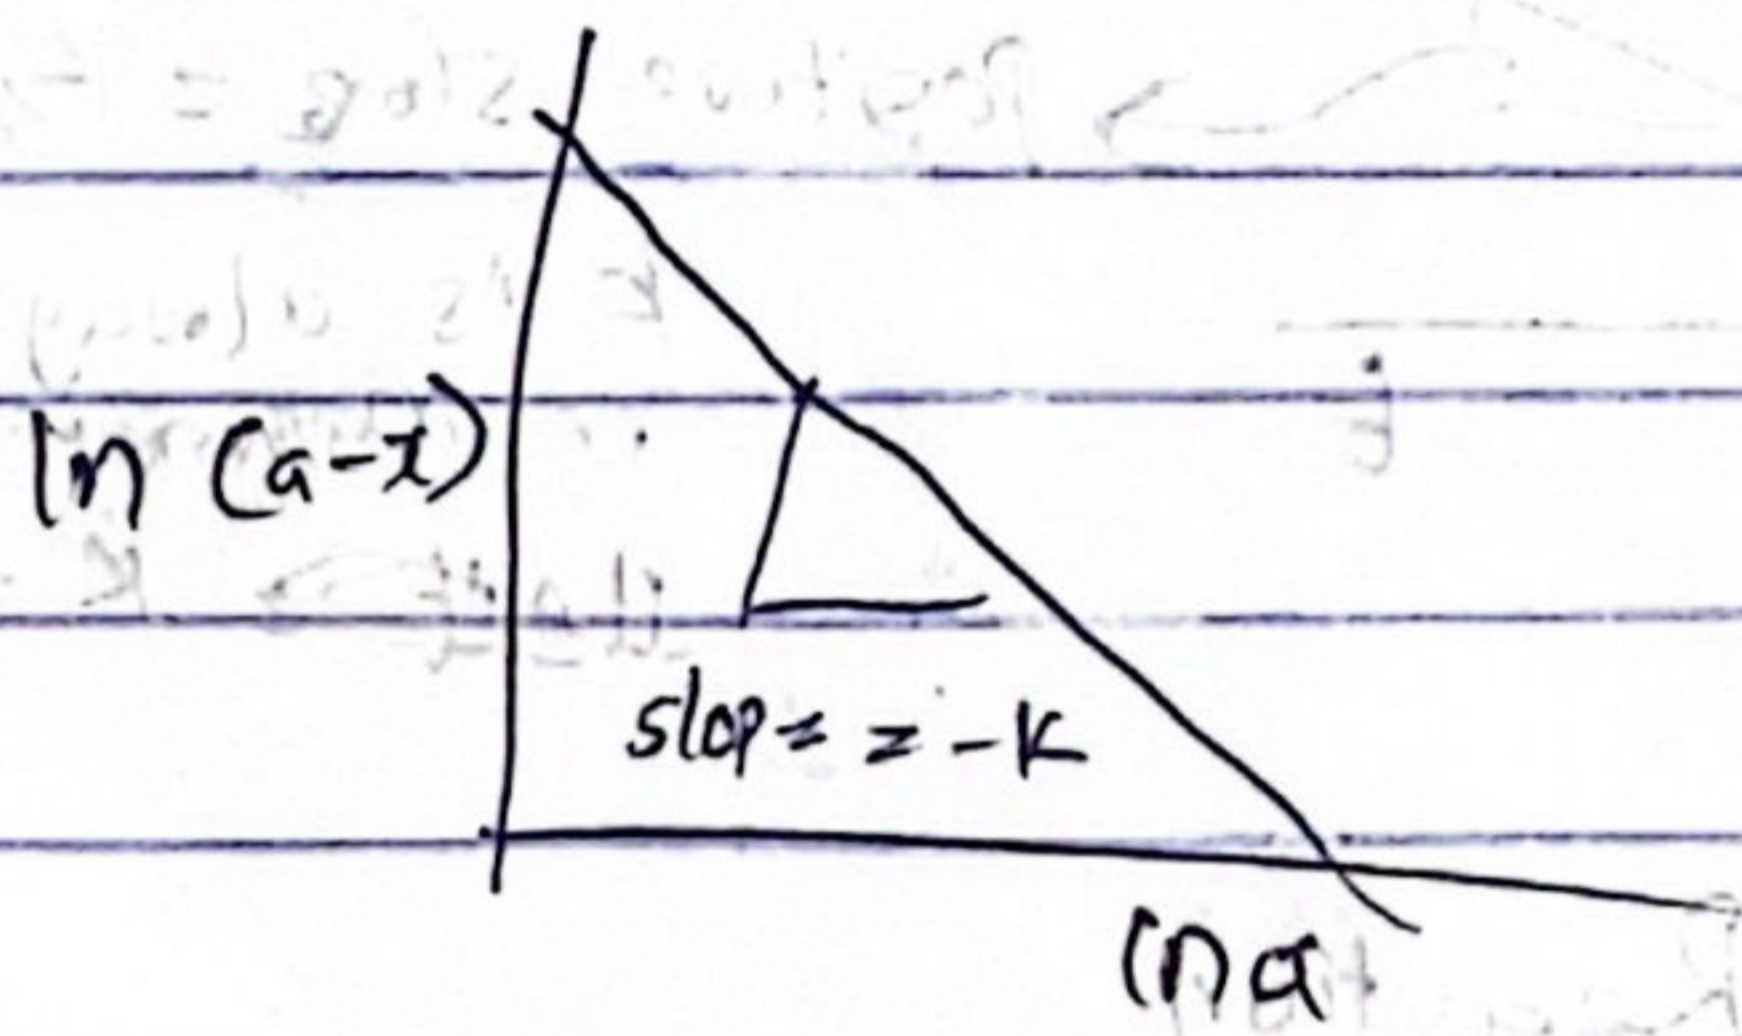 ln (a-x)
slope = -k
ln a